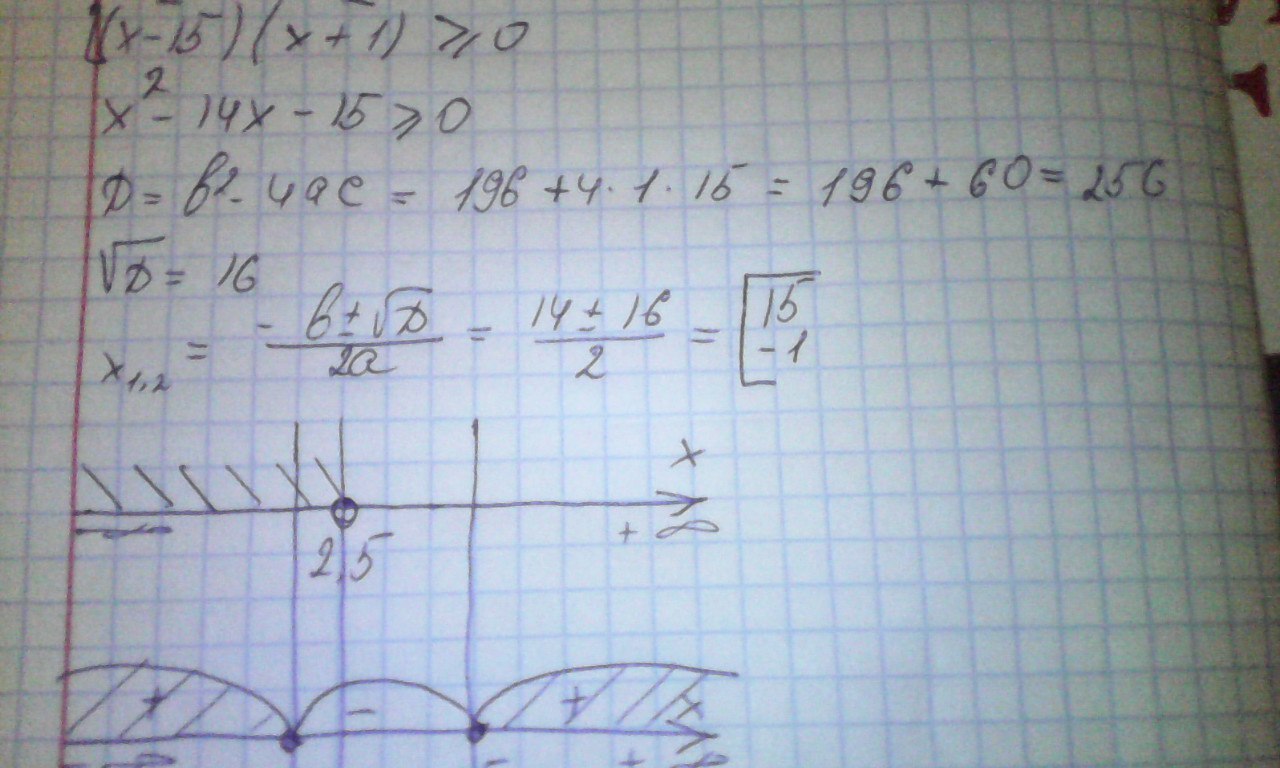 (x-15)(x+1) ⩾ 0
x² - 14x - 15 ⩾ 0
D = b² - 4ac = 196 + 4·1·15 = 196 + 60 = 256
√D = 16
x₁,₂ = -b±√D/2a = 14±16/2 = [15 -1
x
-∞ 2,5 +∞
+ - + x
-∞ +∞